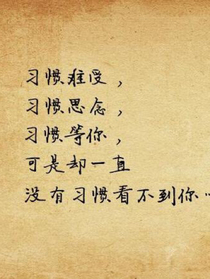 习惯难受，
习惯思念，
习惯等你，
可是却一直
没有习惯看不到你…